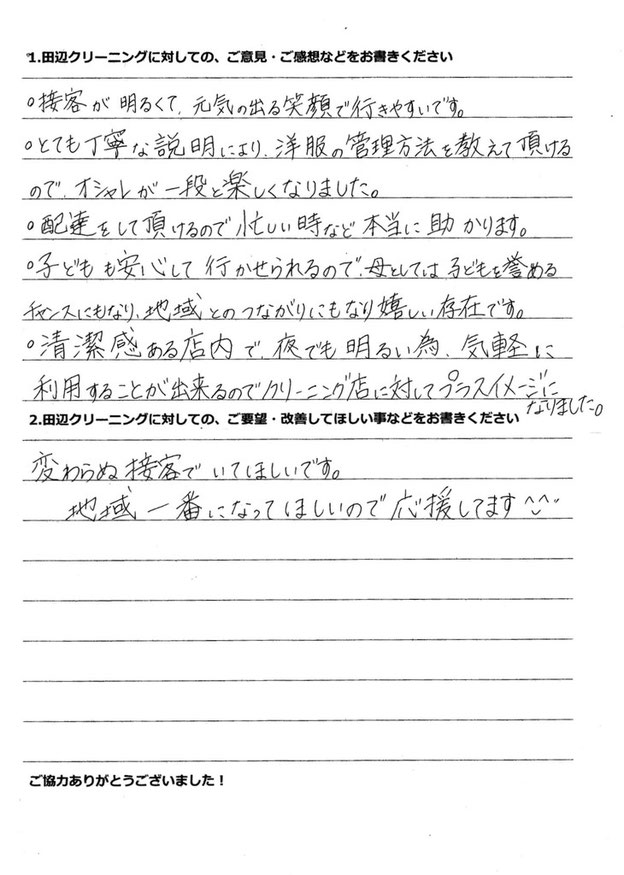 1.田辺クリーニングに対しての、ご意見・ご感想などをお書きください
○接客が明るくて、元気の出る笑顔で行きやすいです。
○とても丁寧な説明により、洋服の管理方法を教えて頂ける
ので、オシャレが一段と楽しくなりました。
○配達をして頂けるので忙しい時など本当に助かります。
○子どもも安心して行かせられるので、母としては子どもを誉める
チャンスにもなり、地域とのつながりにもなり嬉しい存在です。
○清潔感ある店内で、夜でも明るい為、気軽に
利用することが出来るのでクリーニング店に対してプラスイメージに
なりました。
2.田辺クリーニングに対しての、ご要望・改善してほしい事などをお書きください
変わらぬ接客でいてほしいです。
地域一番になってほしいので応援してます^^
ご協力ありがとうございました！